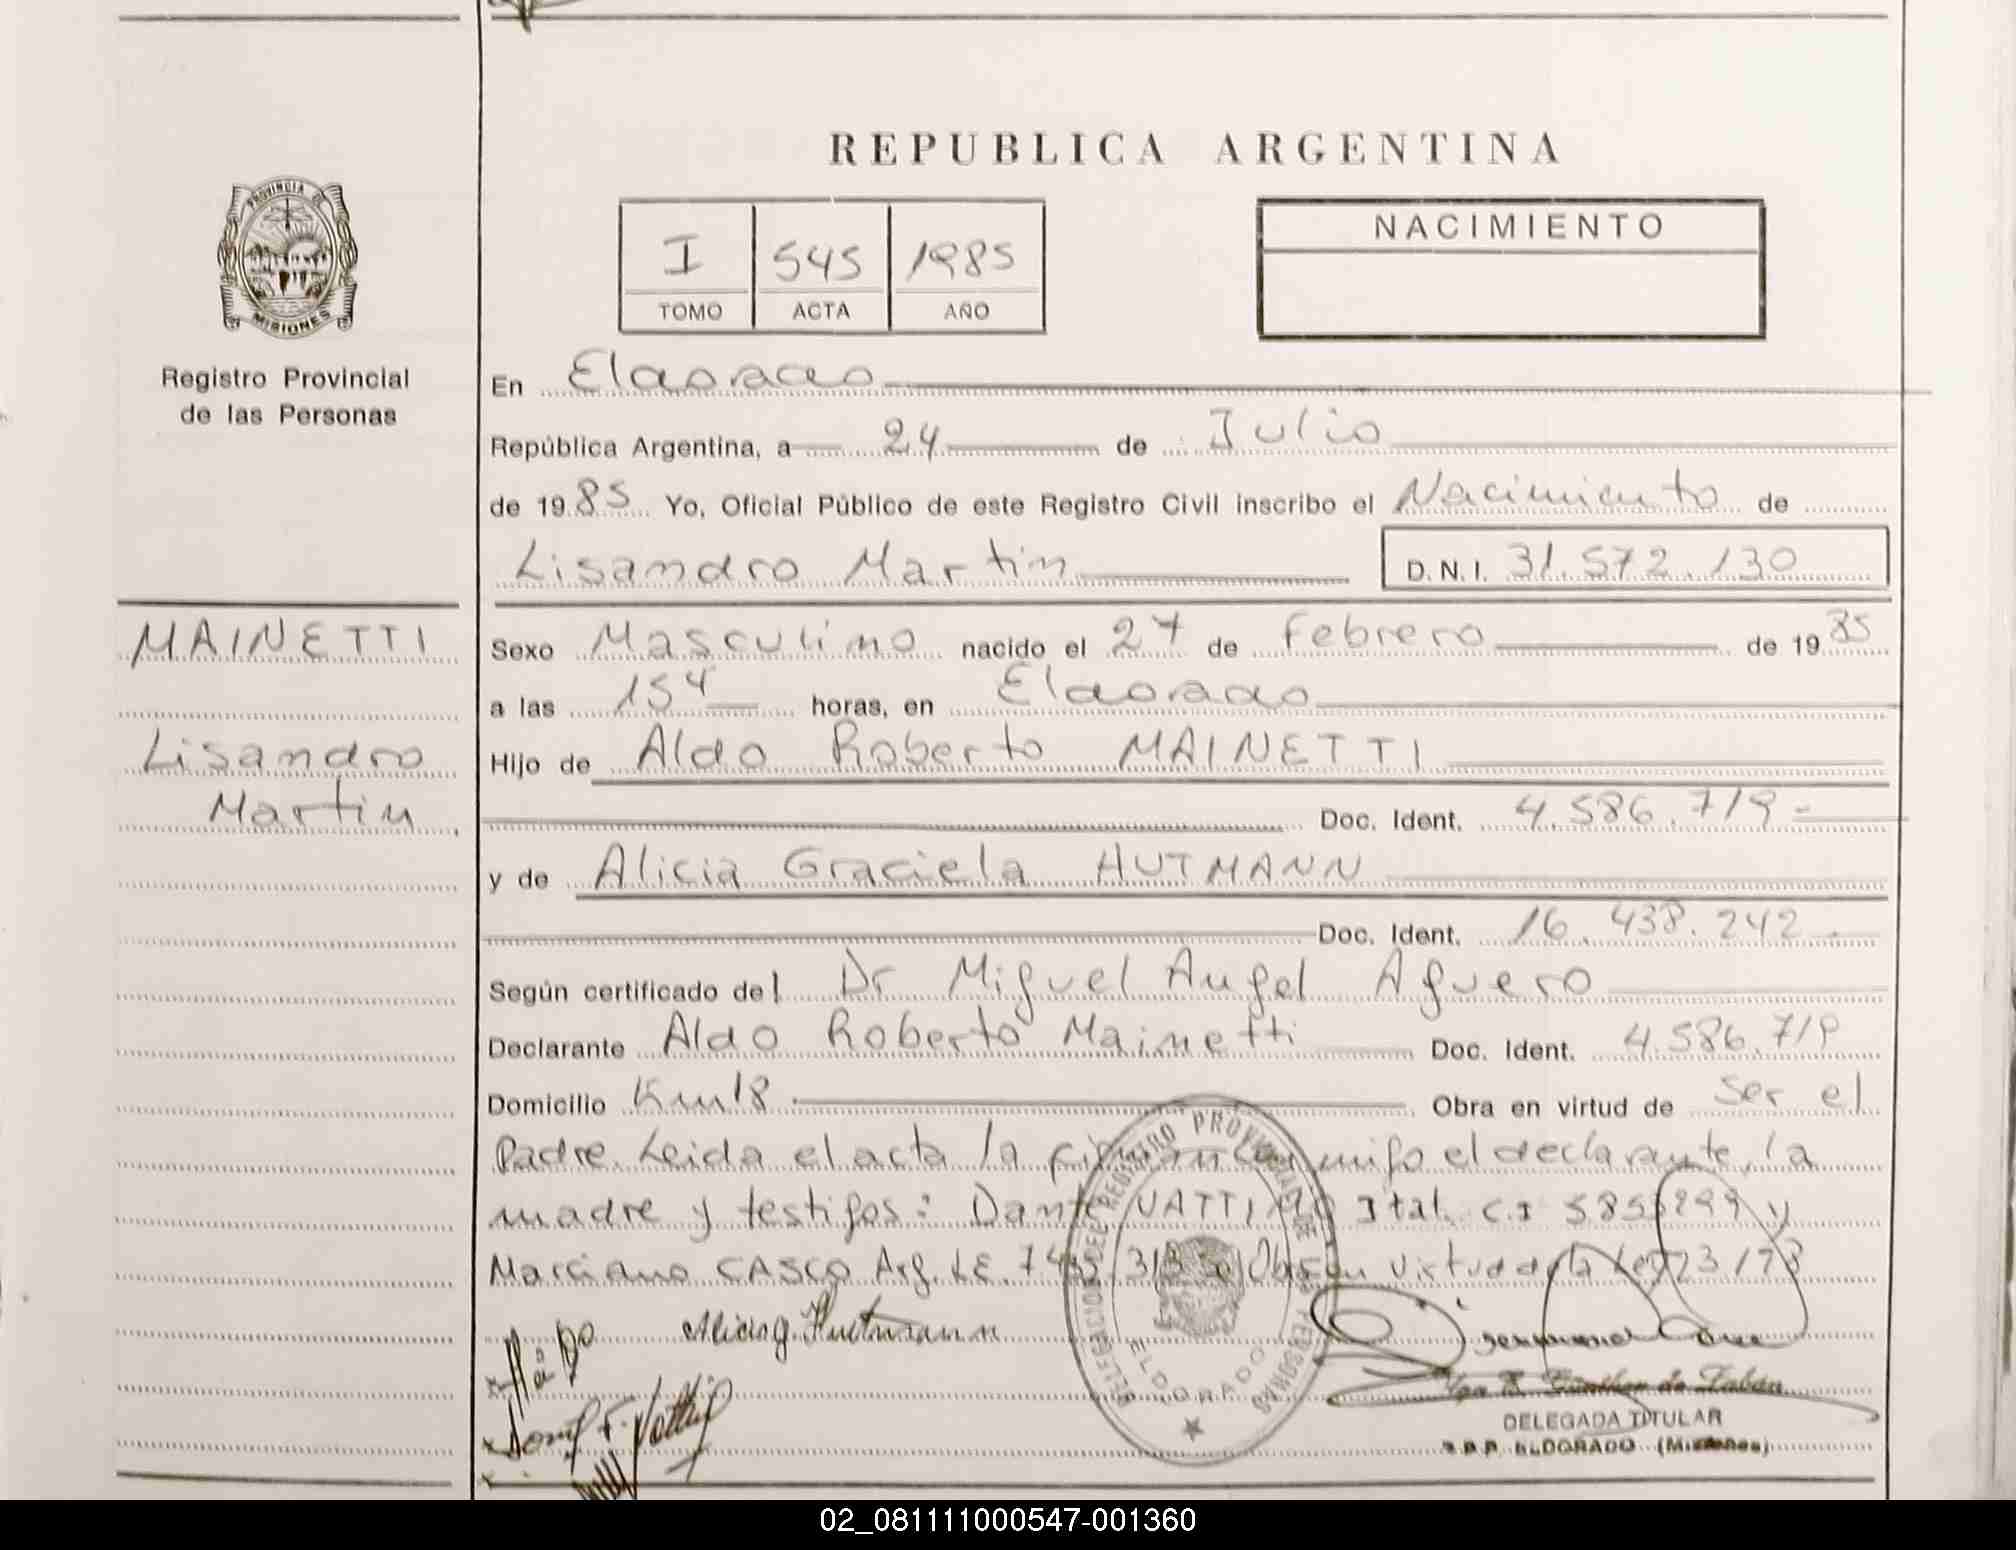 REPUBLICA ARGENTINA
PROVINCIA DE MISIONES
Registro Provincial
de las Personas
I 545 1985
TOMO ACTA AÑO
NACIMIENTO
En Eldorado
República Argentina, a 24 de Julio
de 1985 Yo, Oficial Público de este Registro Civil inscribo el Nacimiento de
Lisandro Martin D.N.I. 31.572.130
MAINETTI
Lisandro
Martin
Sexo Masculino nacido el 27 de Febrero de 1985
a las 15 4 horas, en Eldorado
Hijo de Aldo Roberto MAINETTI
Doc. Ident. 4.586.719-
y de Alicia Graciela HUTMANN
Doc. Ident. 16.438.242.
Según certificado del Dr Miguel Angel Aguero
Declarante Aldo Roberto Mainetti Doc. Ident. 4.586.719
Domicilio Km 18 Obra en virtud de Ser el
Padre. Leida el acta la firman conmigo el declarante, la
madre y testigos: Dante VATTI Ital. C.I y
Marciano CASCO Arg. LE. virtud de la Ley
Alicia g. Hutmann
DELEGACION DEL REGISTRO PROVINCIAL DE LAS PERSONAS
ELDORADO
DELEGADA TITULAR
ELDORADO (Misiones)
02_081111000547-001360